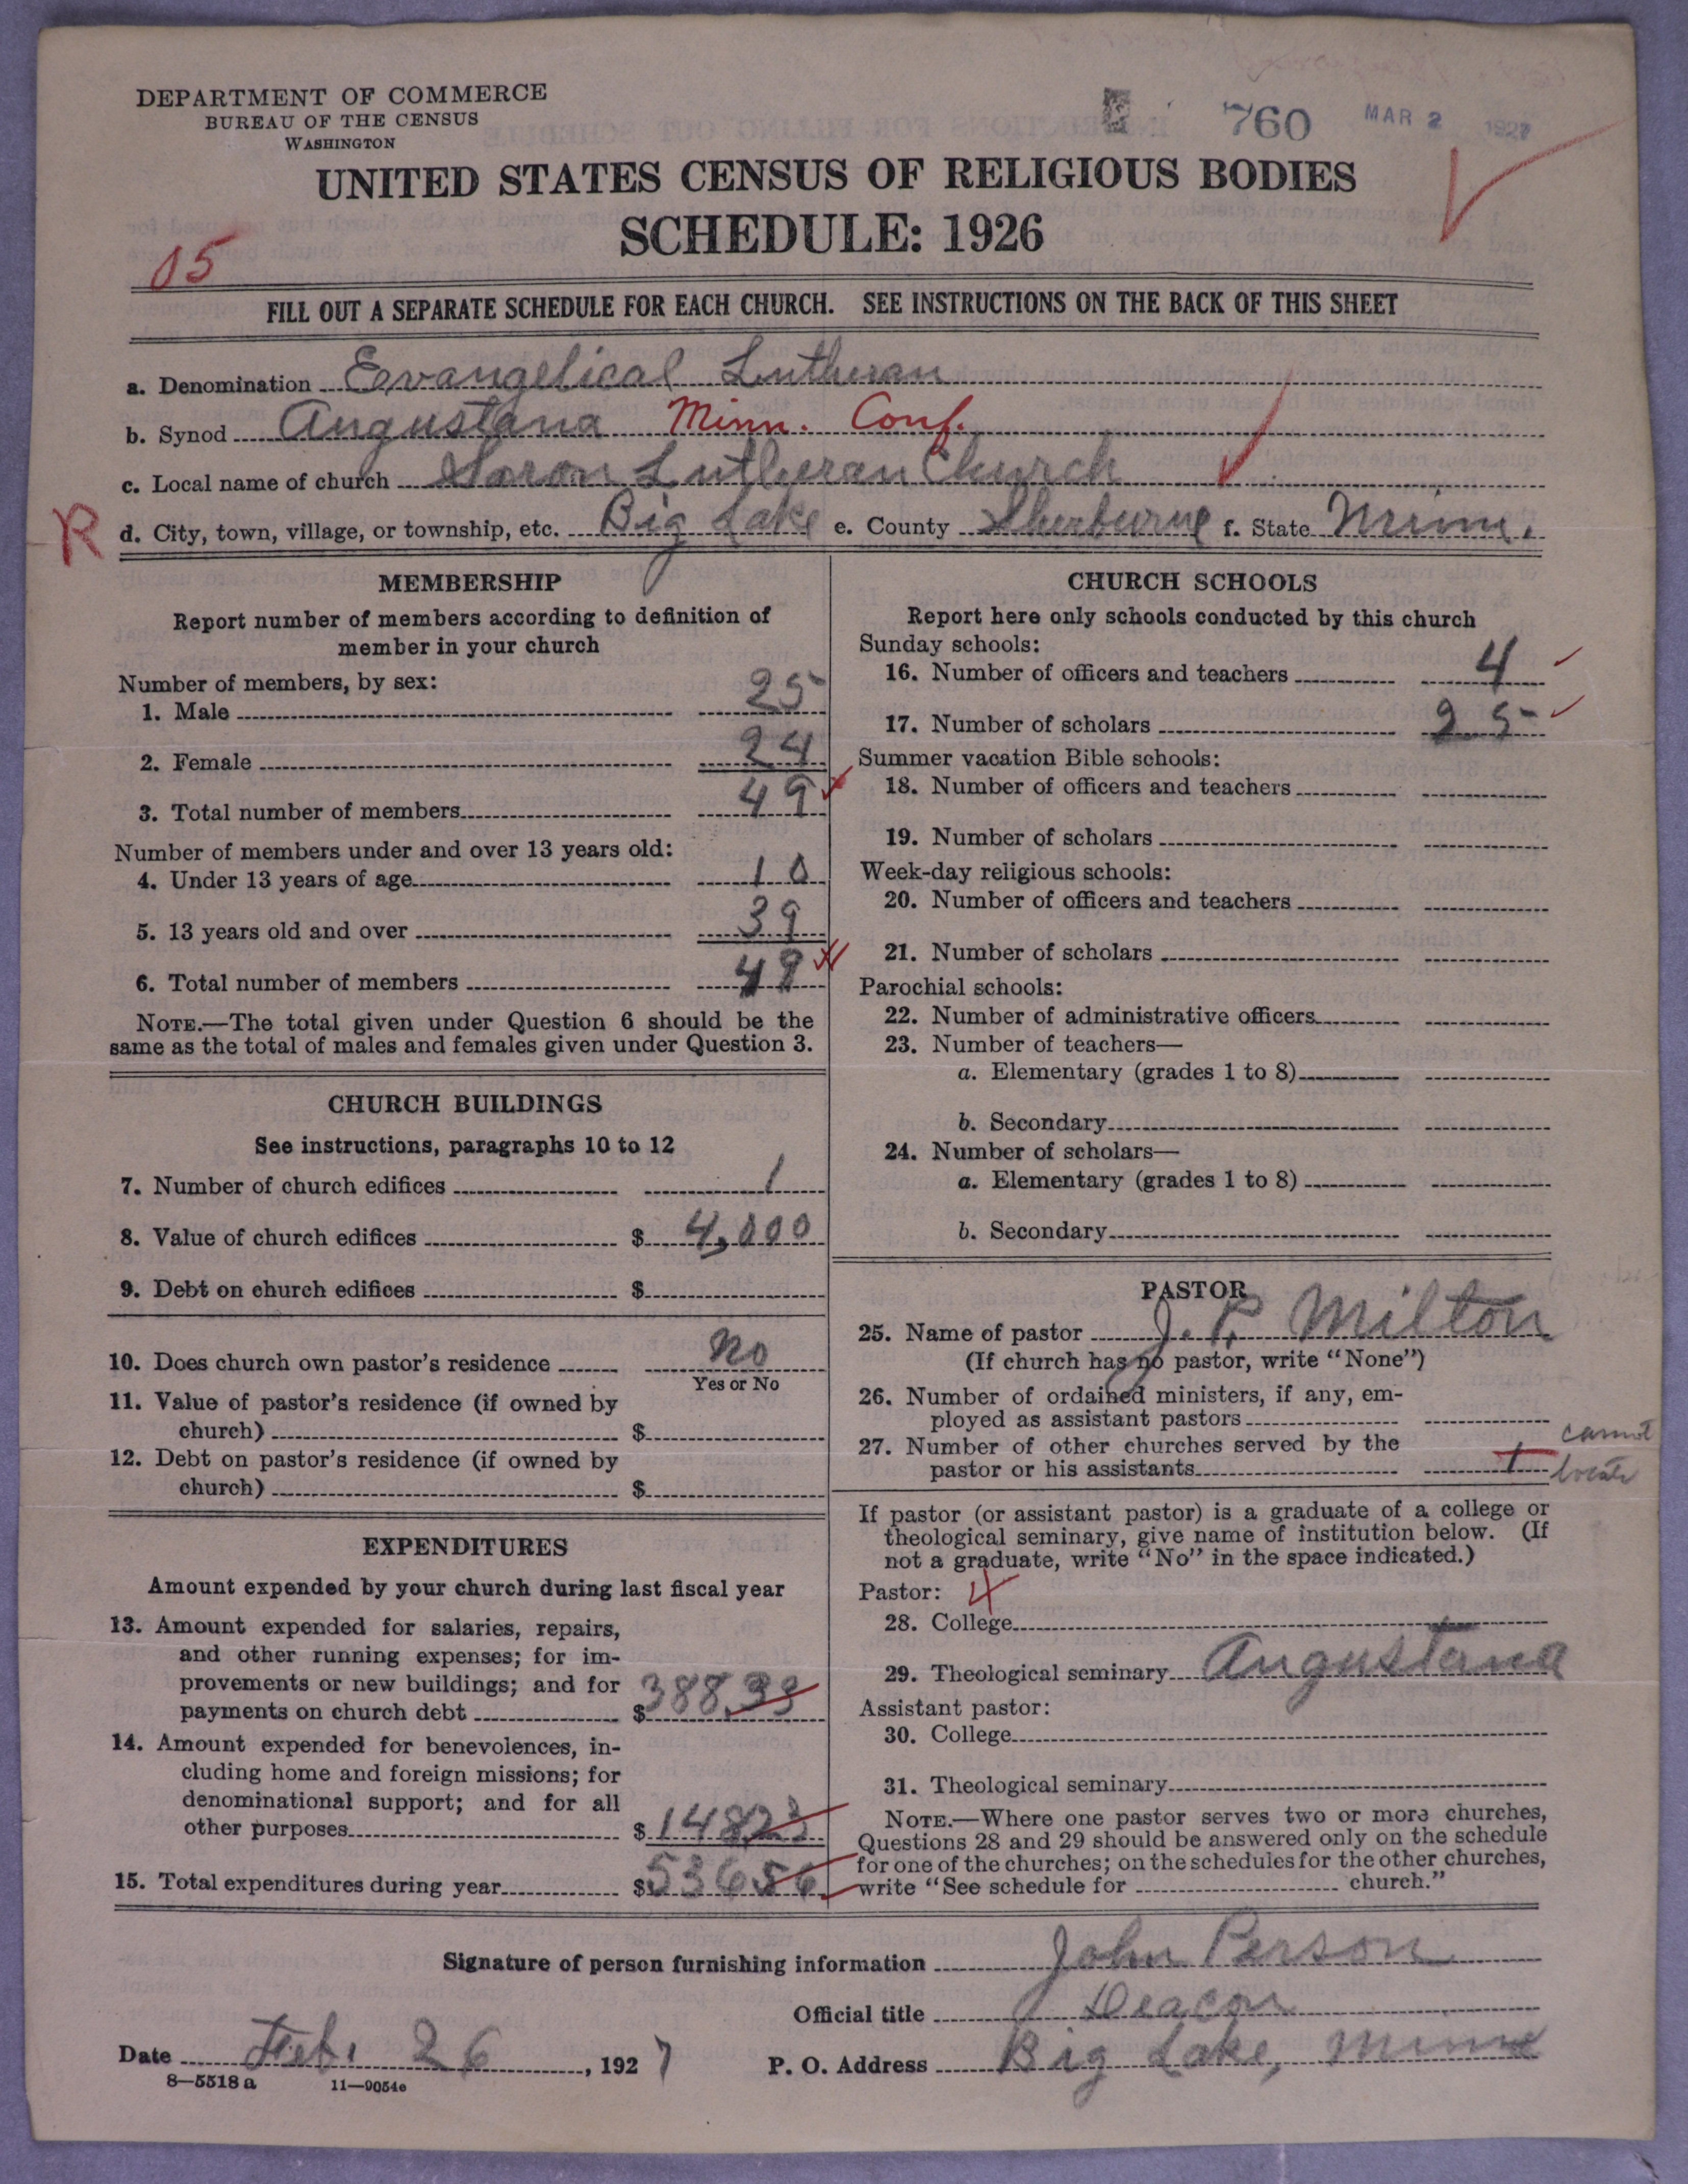 DEPARTMENT OF COMMERCE
BUREAU OF THE CENSUS
WASHINGTON
760 MAR 2 1927
UNITED STATES CENSUS OF RELIGIOUS BODIES
SCHEDULE: 1926
05
FILL OUT A SEPARATE SCHEDULE FOR EACH CHURCH. SEE INSTRUCTIONS ON THE BACK OF THIS SHEET
a. Denomination Evangelical Lutheran
b. Synod Augustana Minn. Conf.
c. Local name of church Saron Lutheran Church
R d. City, town, village, or township, etc. Big Lake e. County Sherburne f. State Minn.
MEMBERSHIP
Report number of members according to definition of
member in your church
Number of members, by sex:
1. Male 25
2. Female 24
3. Total number of members 49
Number of members under and over 13 years old:
4. Under 13 years of age 10
5. 13 years old and over 39
6. Total number of members 49
NOTE.—The total given under Question 6 should be the
same as the total of males and females given under Question 3.
CHURCH BUILDINGS
See instructions, paragraphs 10 to 12
7. Number of church edifices 1
8. Value of church edifices $ 4,000
9. Debt on church edifices $
10. Does church own pastor's residence No
Yes or No
11. Value of pastor's residence (if owned by
church) $
12. Debt on pastor's residence (if owned by
church) $
EXPENDITURES
Amount expended by your church during last fiscal year
13. Amount expended for salaries, repairs,
and other running expenses; for im-
provements or new buildings; and for
payments on church debt $ 388.33
14. Amount expended for benevolences, in-
cluding home and foreign missions; for
denominational support; and for all
other purposes $ 148 23
15. Total expenditures during year $ 536 56
CHURCH SCHOOLS
Report here only schools conducted by this church
Sunday schools:
16. Number of officers and teachers 4
17. Number of scholars 25
Summer vacation Bible schools:
18. Number of officers and teachers
19. Number of scholars
Week-day religious schools:
20. Number of officers and teachers
21. Number of scholars
Parochial schools:
22. Number of administrative officers
23. Number of teachers—
a. Elementary (grades 1 to 8)
b. Secondary
24. Number of scholars—
a. Elementary (grades 1 to 8)
b. Secondary
PASTOR
25. Name of pastor J. P. Milton
(If church has no pastor, write "None")
26. Number of ordained ministers, if any, em-
ployed as assistant pastors
27. Number of other churches served by the
pastor or his assistants 1 cannot
locate
If pastor (or assistant pastor) is a graduate of a college or
theological seminary, give name of institution below. (If
not a graduate, write "No" in the space indicated.)
Pastor: 4
28. College
29. Theological seminary Augustana
Assistant pastor:
30. College
31. Theological seminary
NOTE.—Where one pastor serves two or more churches,
Questions 28 and 29 should be answered only on the schedule
for one of the churches; on the schedules for the other churches,
write "See schedule for church."
Signature of person furnishing information John Person
Official title Deacon
Date Feb. 26, 1927
P. O. Address Big Lake, Minn
8—5518 a 11—9054e